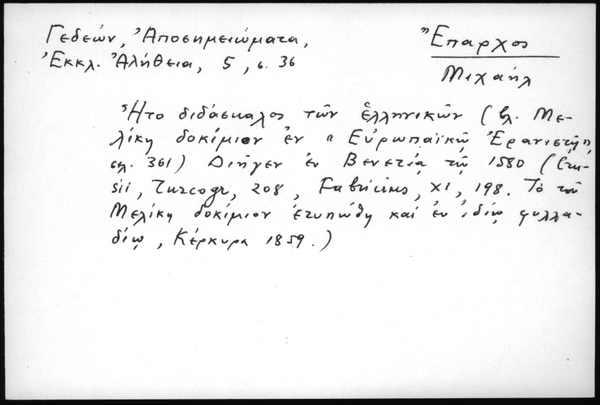 Γεδεών, Ἀποσημειώματα,
Ἐκκλ. Ἀλήθεια, 5, σ. 36
Ἔπαρχος
Μιχαήλ
Ἦτο διδάσκαλος τῶν ἑλληνικῶν (βλ. Με-
λίκη δοκίμιον ἐν " Εὐρωπαϊκῷ Ἐρανιστῇ,
σελ. 361) Διῆγεν ἐν Βενετίᾳ τῷ 1580 (Cru-
sii, Turcogr, 208, Fabricius, XI, 198. Τὸ τοῦ
Μελίκη δοκίμιον ἐτυπώθη καὶ ἐν ἰδίῳ φυλλα-
δίῳ, Κέρκυρα 1859.)